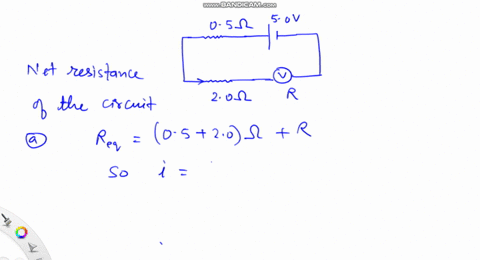 www.BANDICAM.com
0.5Ω 5.0V
V
2.0Ω R
Net resistance
of the circuit
(a) Req = (0.5 + 2.0) Ω + R
So i =